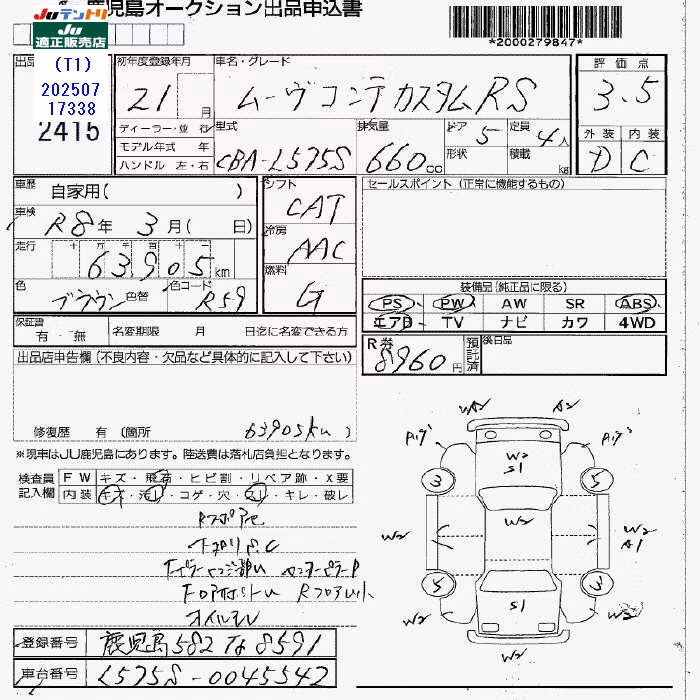 鹿児島オークション出品申込書
JUテントリ
JU
適正販売店
*2000279847*
出品
(T1)
202507
17338
2415
初年度登録年月
21 月
車名・グレード
ムーヴ コンテ カスタム RS
評価点
3.5
外装 内装
D C
ディーラー・並行
モデル年式 年
ハンドル 左・右
型式
CBA-L575S
排気量
660 cc
ドア 5
形状
定員 4人
積載 kg
車歴
自家用( )
車検
R8年 3月( 日)
走行
63905 km
色
ブラウン
色替
色コード
R59
シフト
CAT
冷房
AAC
燃料
G
セールスポイント (正常に機能するもの)
装備品(純正品に限る)
PS PW AW SR ABS
エアB TV ナビ カワ 4WD
保証書
有・無
名変期限 月 日迄に名変できる方
R券
8960円
預託済
後日品
出品店申告欄(不良内容・欠品など具体的に記入して下さい)
修復歴 有 (箇所 63905km )
※現車はJU鹿児島にあります。陸送費は落札店負担となります。
検査員
記入欄
FW キズ・飛石・ヒビ割・リペア跡・X要
内装 キズ・汚れ・コゲ・穴・スレ・キレ・破レ
オイルモレ
W2 A2
W2
S1
3 5
W2
W2 W2
A1
5 3
S1
W2 W2
W2
登録番号 鹿児島582 8591
車台番号 L575S-0045542